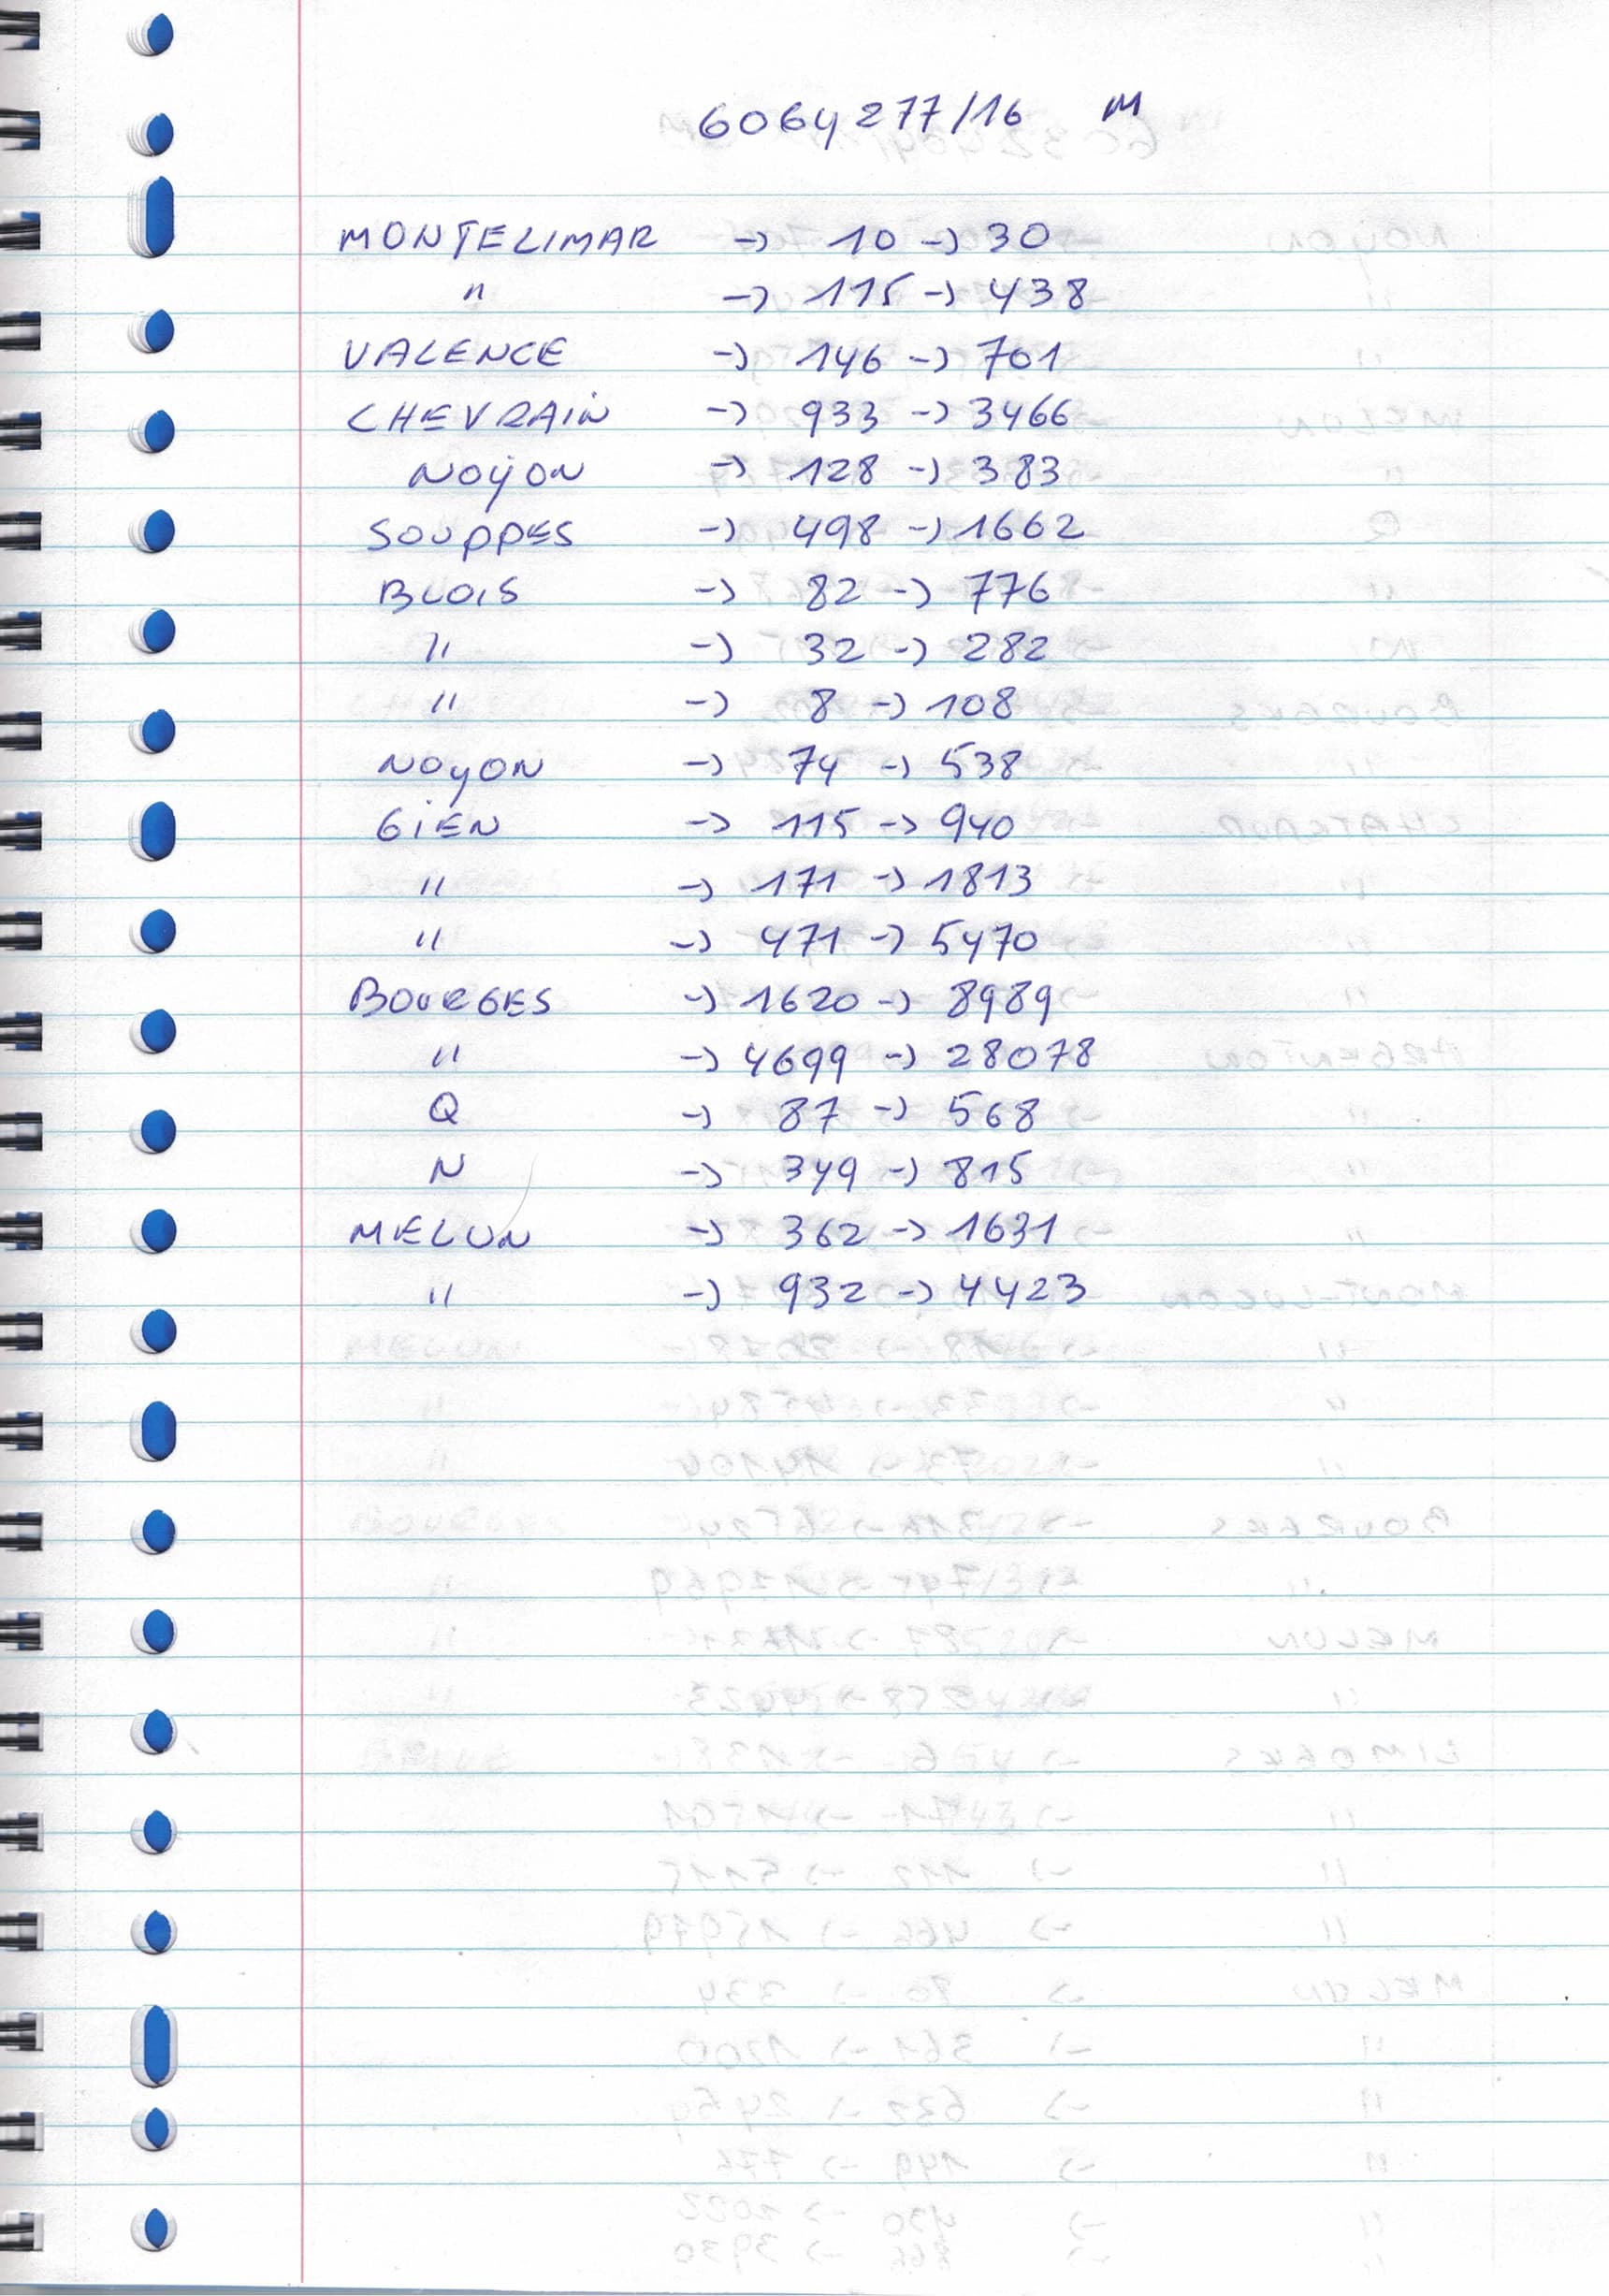 6064277/16 M
MONTELIMAR -> 10 -> 30
" -> 115 -> 438
VALENCE -> 146 -> 701
CHEVRAIN -> 933 -> 3466
NOYON -> 128 -> 383
SOUPPES -> 498 -> 1662
BLOIS -> 82 -> 776
" -> 32 -> 282
" -> 8 -> 108
NOYON -> 74 -> 538
GIEN -> 115 -> 940
" -> 171 -> 1813
" -> 471 -> 5470
BOURGES -> 1620 -> 8989
" -> 4699 -> 28078
Q -> 87 -> 568
N -> 349 -> 815
MELUN -> 362 -> 1631
" -> 932 -> 4423